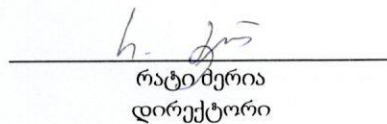 რატი ბერია
დირექტორი